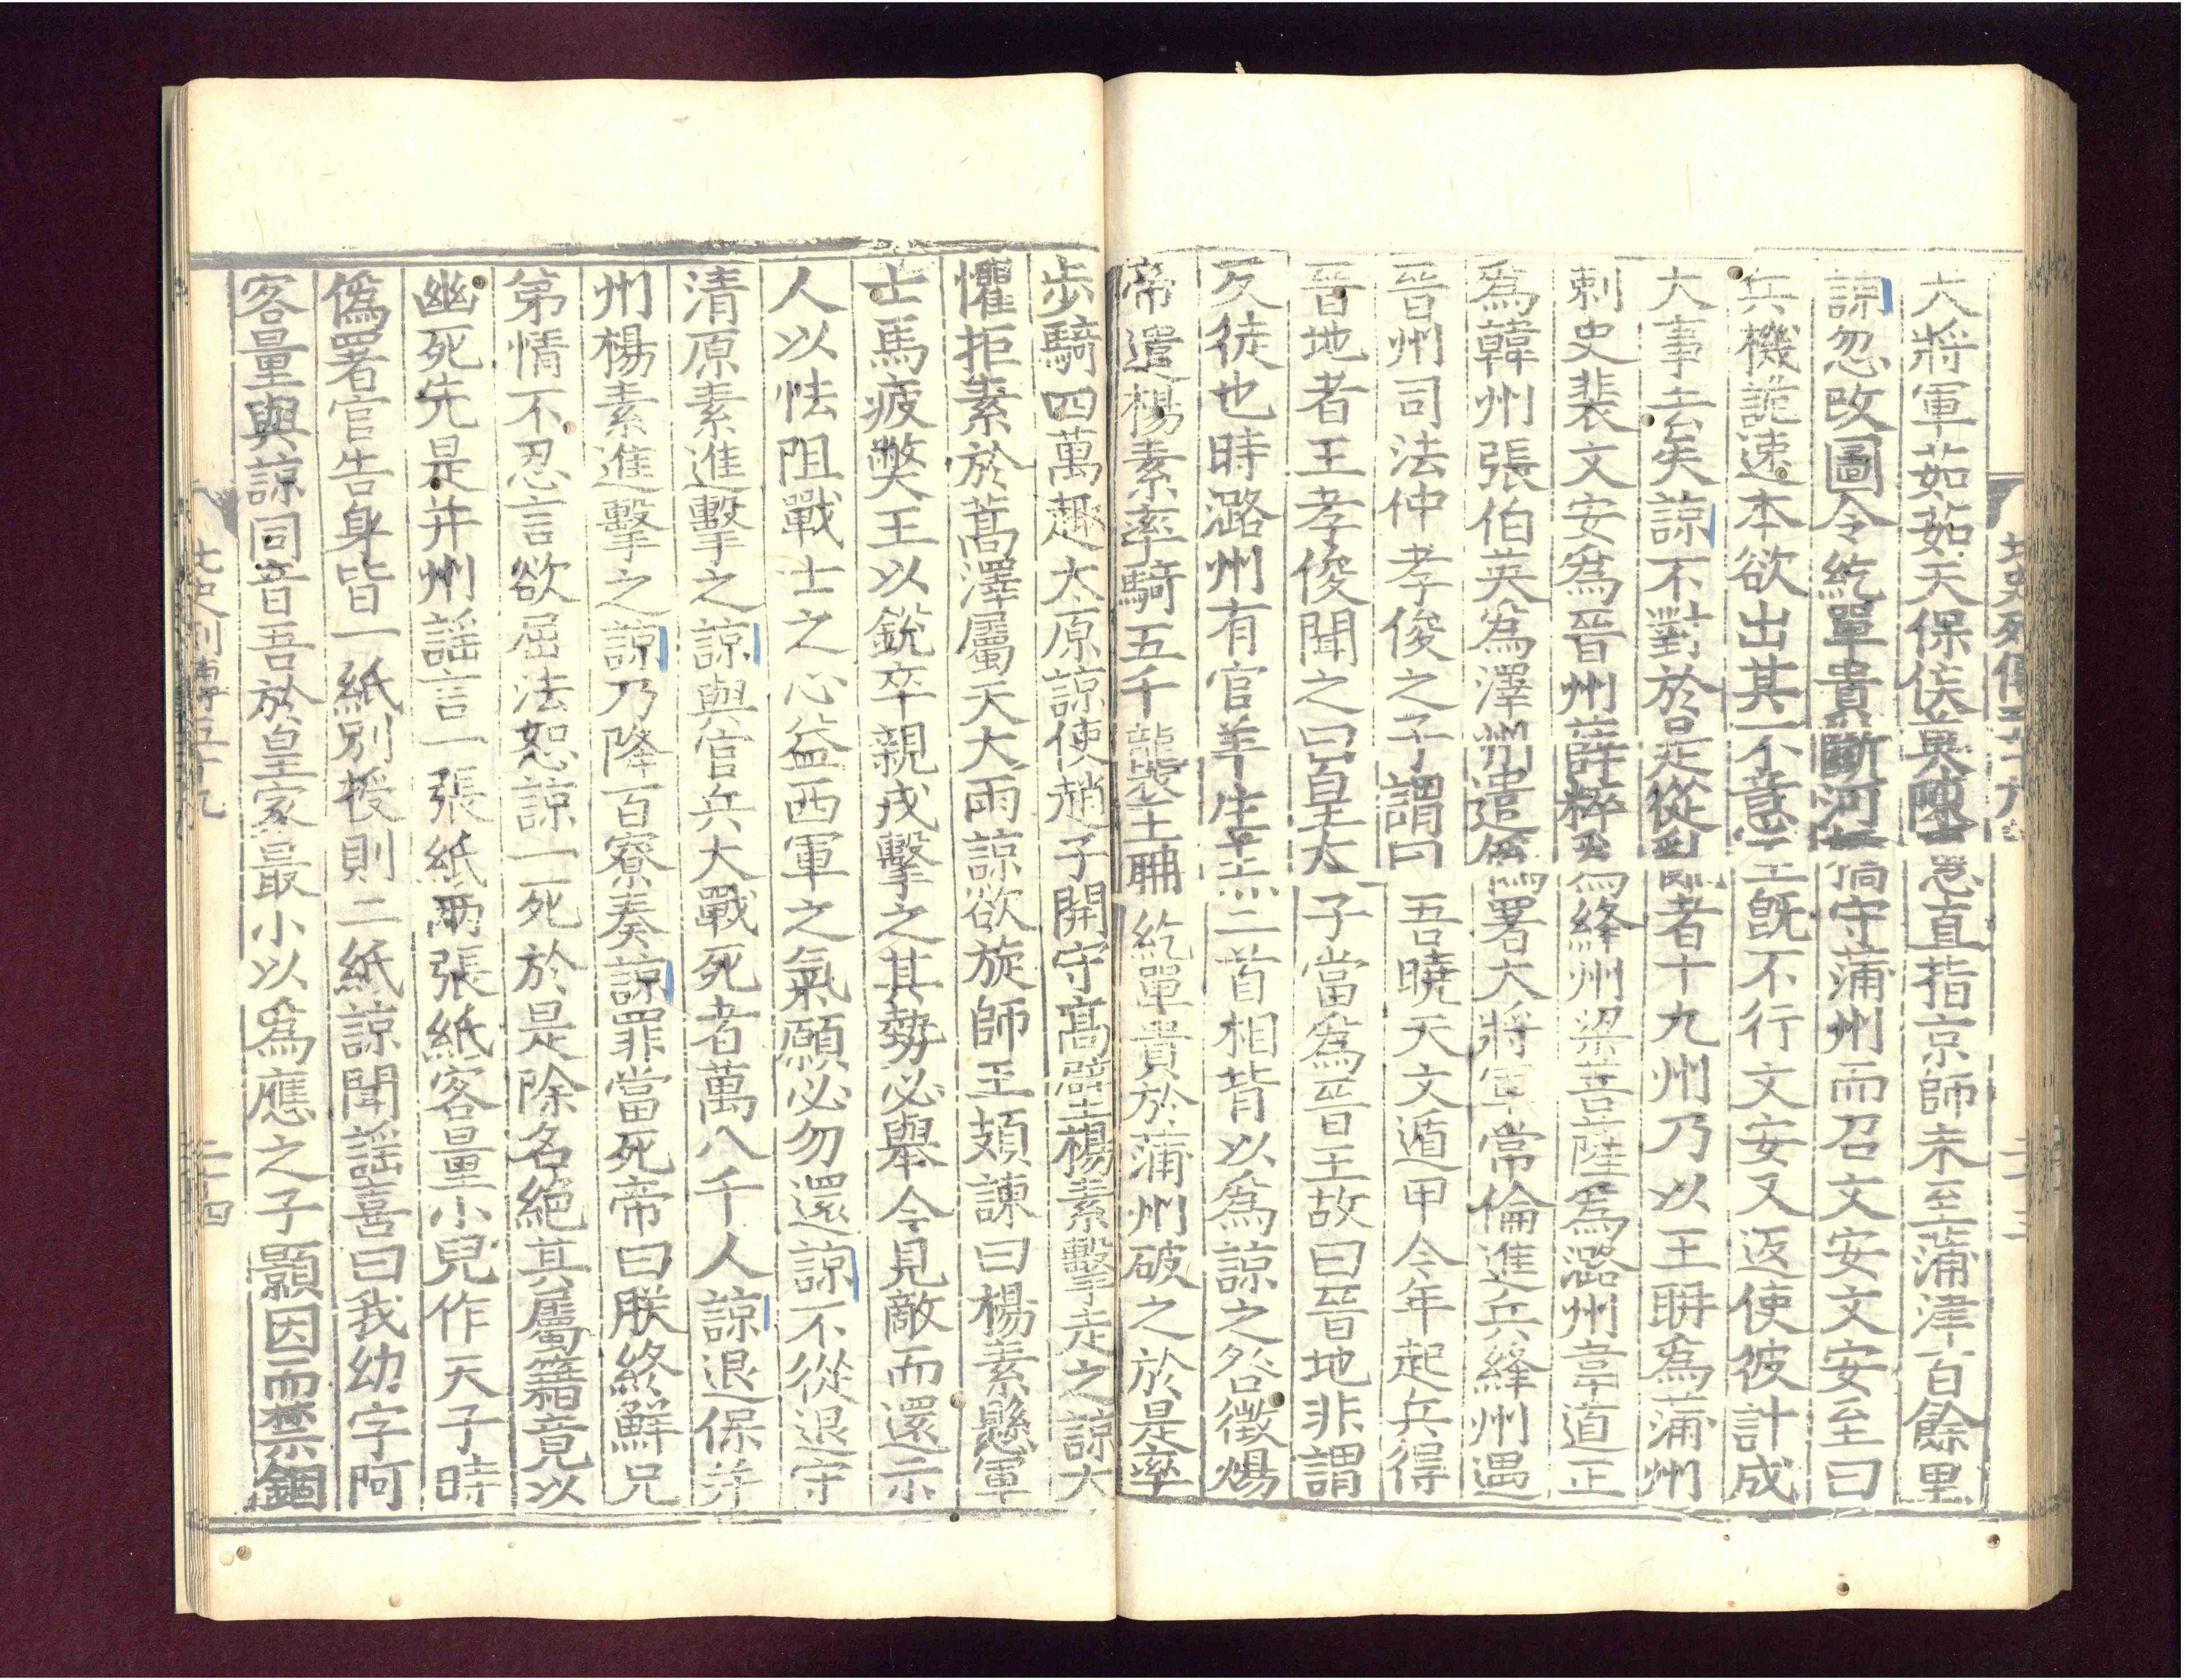 北史列傳五十九
大將軍茹茹天保侯莫陳惠直指京師未至蒲津百餘里
諒忽改圖令紇單貴斷河橋守蒲州而召文安文安至曰
兵機詭速本欲出其不意王旣不行文安又返使彼計成
大事去矣諒不對於是從亂者十九州乃以王聃爲蒲州
刺史裴文安爲晉州薛粹爲絳州梁菩薩爲潞州韋道正
爲韓州張伯英爲澤州遣僞署大將軍常倫進兵絳州遇
晉州司法仲孝俊之子謂曰吾曉天文遁甲今年起兵得
晉地者王孝俊聞之曰皇太子當爲晉王故曰晉地非謂
反徒也時潞州有官羊生羔二首相背以爲諒之咎徵煬
帝遣楊素率騎五千襲王聃紇單貴於蒲州破之於是率
步騎四萬趣太原諒使趙子開守高壁楊素擊走之諒大
懼拒素於蒿澤屬天大雨諒欲旋師王頍諫曰楊素懸軍
士馬疲弊王以銳卒親戎擊之其勢必舉今見敵而還示
人以怯阻戰士之心益西軍之氣願必勿還諒不從退守
清原素進擊之諒與官兵大戰死者萬八千人諒退保并
州楊素進擊之諒乃降百寮奏諒罪當死帝曰朕終鮮兄
弟情不忍言欲屈法恕諒一死於是除名絕其屬籍竟以
幽死先是并州謠言一張紙兩張紙客量小兒作天子時
僞署官告身皆一紙別授則二紙諒聞謠喜曰我幼字阿
客量與諒同音吾於皇家最小以爲應之子顥因而禁錮
北史列傳五十九 二十四